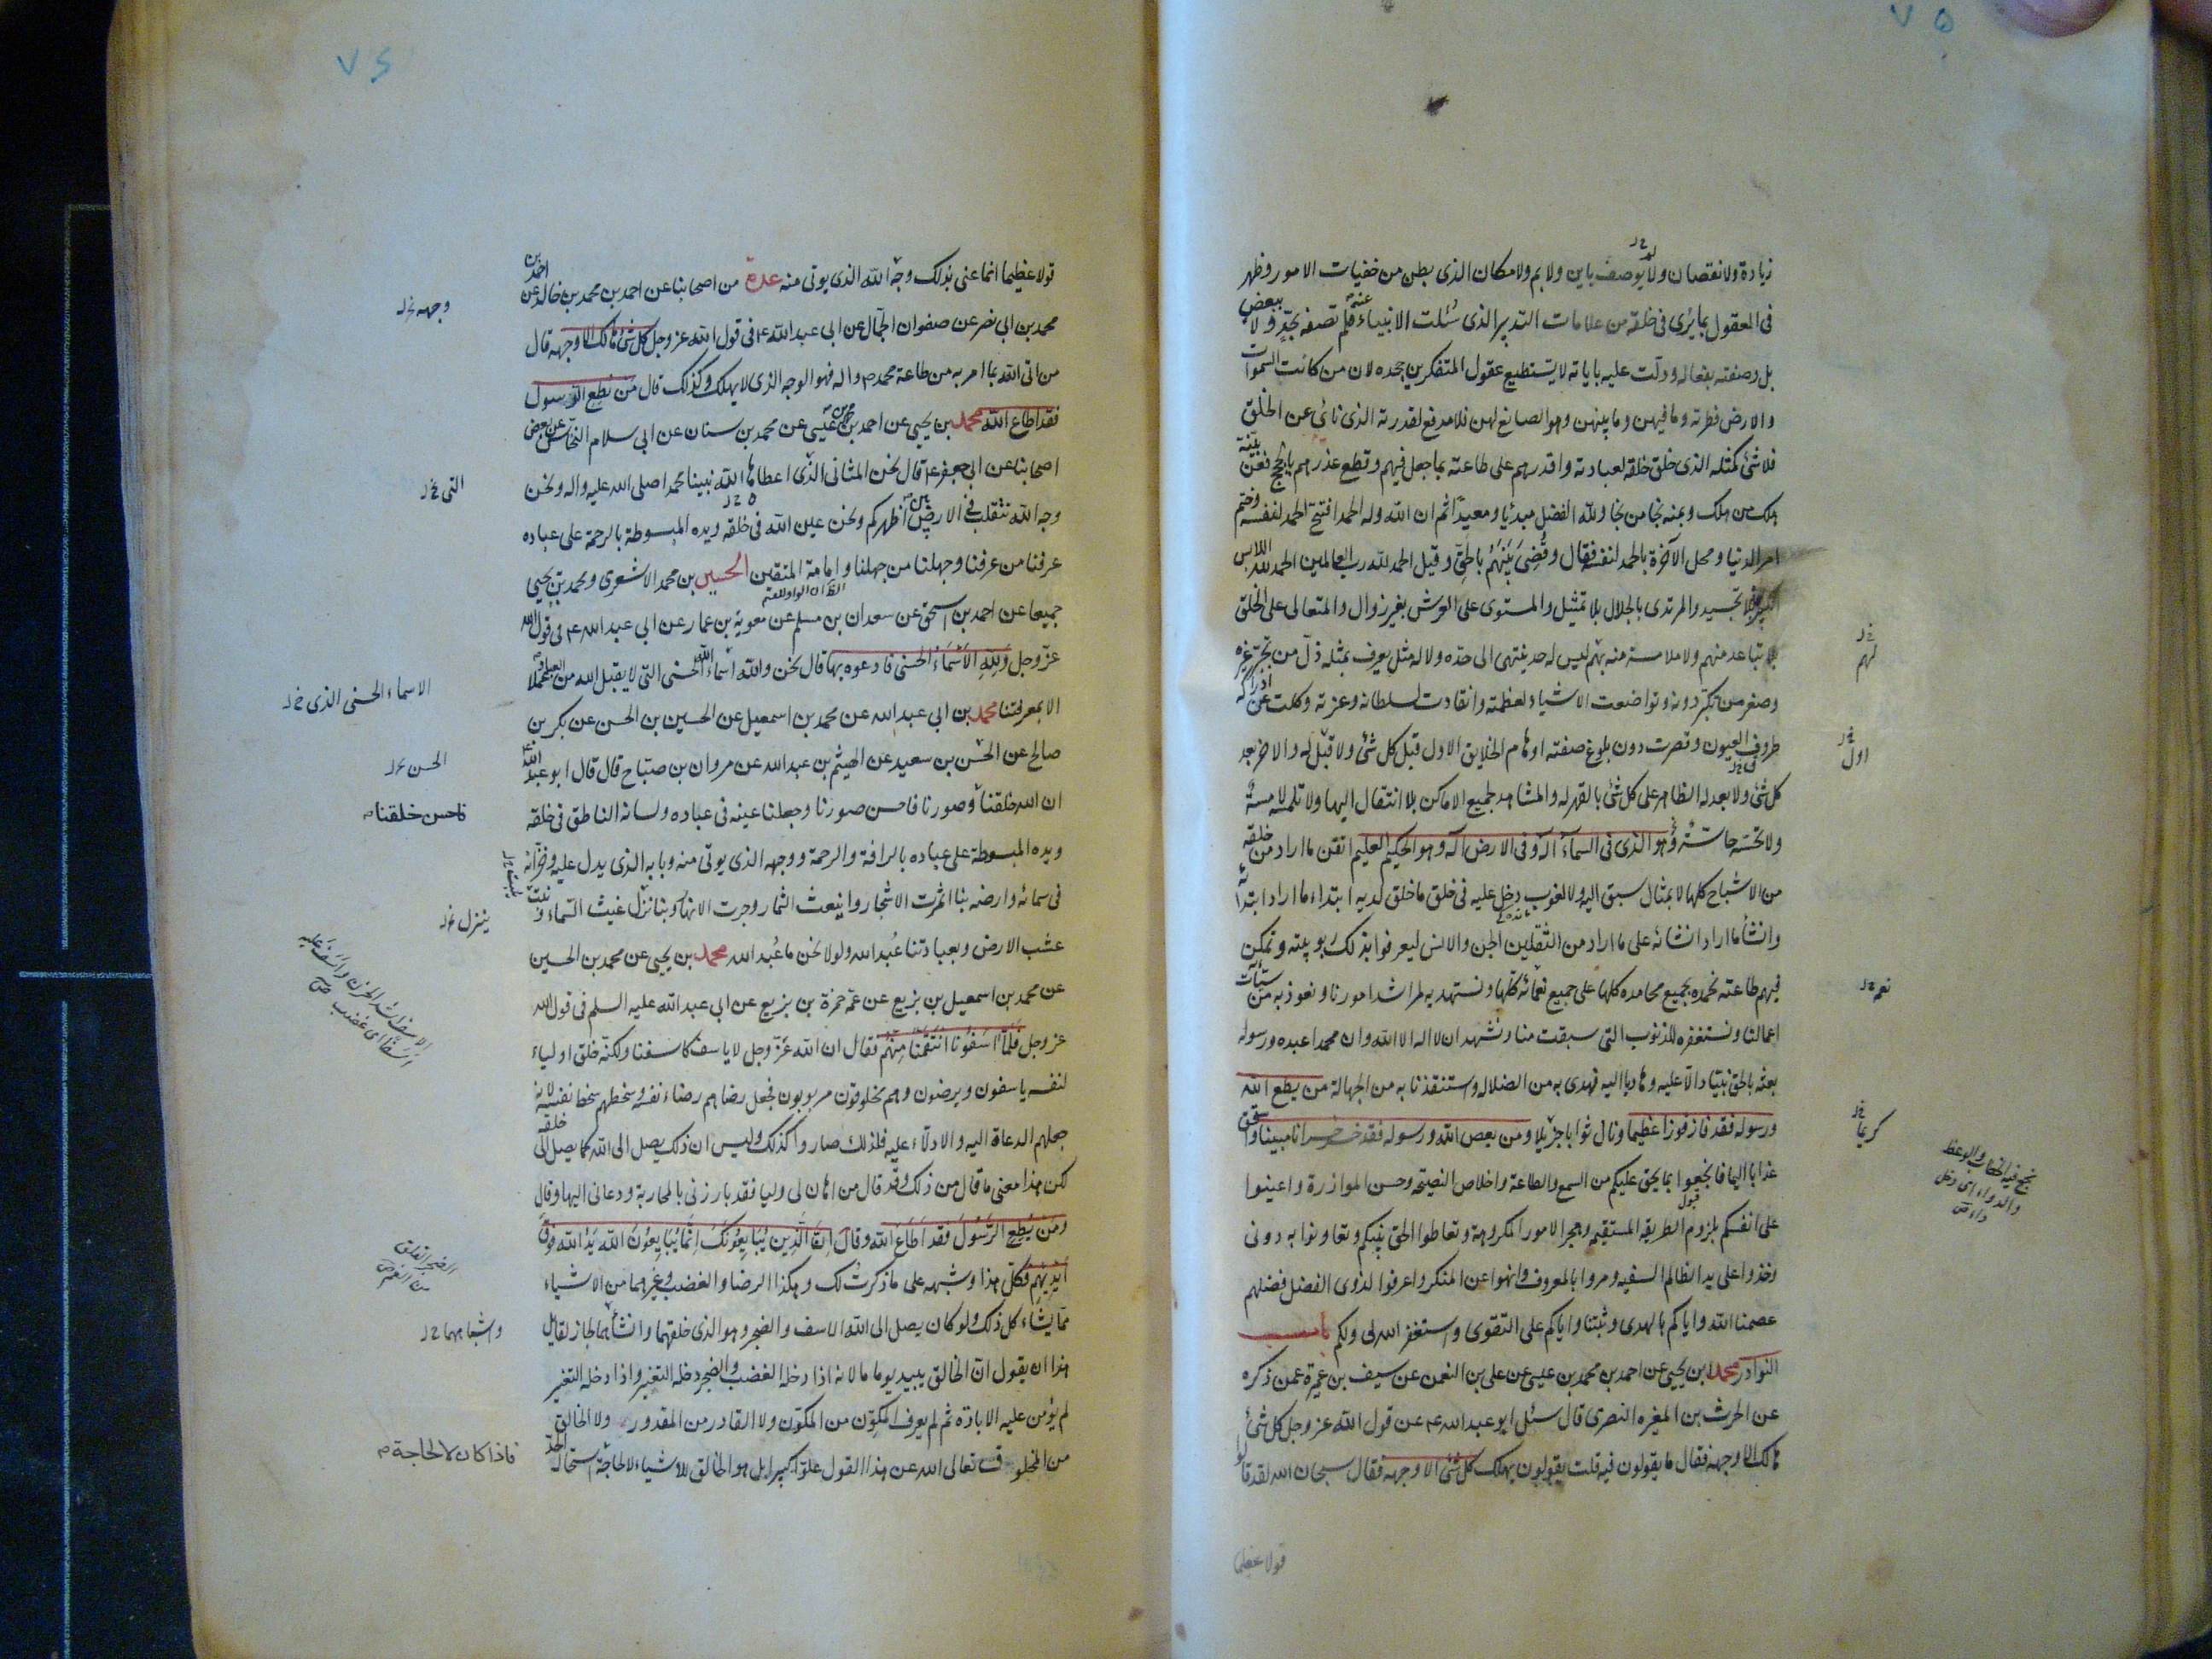 ٧٥
زيادة ولا نقصان ولا يوصف باين ولا بم ولا مكان الذى بطن من خفيات الامور وظهر
فى العقول بما يرى فى خلقه من علامات التدبير الذى سئلت الانبياء عنه فلم تصفه بحد ولا ببعض
بل وصفته بفعاله ودلت عليه باياته لا يستطيع عقول المتفكرين جحده لان من كانت السموات
والارض فطرته وما فيهن وما بينهن وهو الصانع لهن فلا مدفع لقدرته الذى نائ عن الخلق
فلا شئ كمثله الذى خلق خلقه لعبادته واقدرهم على طاعته بما جعل فيهم وقطع عذرهم بالحجج فعن بينة
هلك من هلك وبمنه نجا من نجا ولله الفضل مبدئا ومعيدا ثم ان الله وله الحمد افتتح الحمد لنفسه وختم
امر الدنيا ومحل الآخرة بالحمد لنفسه فقال وقضى بينهم بالحق وقيل الحمد لله رب العالمين الحمد لله اللابس
الكبرياء بلا تجسيد والمرتدى بالجلال بلا تمثيل والمستوى على العرش بغير زوال والمتعالى على الخلق
بلا تباعد منهم ولا ملامسة منه بهم ليس له حد ينتهى الى حده ولا له مثل يعرف بمثله ذل من تجبر غيره
وصغر من تكبر دونه وتواضعت الاشياء لعظمته وانقادت لسلطانه وعزته وكلت عن ادراكه
طروف العيون وقصرت دون بلوغ صفته اوهام الخلايق الاول قبل كل شئ ولا قبل له والآخر بعد
كل شئ ولا بعد له الظاهر على كل شئ بالقهر له والمشاهد لجميع الاماكن بلا انتقال اليها ولا تلمسه لامسة
ولا تحسه حاسة وهو الذى فى السماء اله وفى الارض اله وهو الحكيم العليم اتقن ما اراد من خلقه
من الاشباح كلها لا بمثال سبق اليه ولا لغوب دخل عليه فى خلق ما خلق لديه ابتداء ما اراد ابتدائه
وانشأ ما اراد انشائه على ما اراد من الثقلين الجن والانس ليعرفوا بذلك ربوبيته وتمكن
فيهم طاعته نحمده بجميع محامده كلها على جميع نعمائه كلها ونستهديه لمراشد امورنا ونعوذ به من سيئات
اعمالنا ونستغفره للذنوب التى سبقت منا ونشهد ان لا اله الا الله وان محمدا عبده ورسوله
بعثه بالحق نبيا دالا عليه وهاديا اليه فهدى به من الضلاله واستنقذنا به من الجهالة من يطع الله
ورسوله فقد فاز فوزا عظيما ونال ثوابا جزيلا ومن يعص الله ورسوله فقد خسر خسرانا مبينا واستحق
عذابا اليما فانجعوا بما يحق عليكم من السمع والطاعة واخلاص النصيحة وحسن الموازرة واعينوا
على انفسكم بلزوم الطريقه المستقيمه وهجر الامور المكروهة وتعاطوا الحق بينكم وتعاونوا به دونى
وخذوا على يد الظالم السفيه ومروا بالمعروف وانهوا عن المنكر واعرفوا لذوى الفضل فضلهم
عصمنا الله واياكم بالهدى وثبتنا واياكم على التقوى واستغفر الله لى ولكم باب
النوادر محمد بن يحيى عن احمد بن محمد بن عيسى عن على بن النعمن عن سيف بن عميرة عمن ذكره
عن الحرث بن المغيره النصرى قال سئل ابو عبد الله ع عن قول الله عز وجل كل شئ
هالك الا وجهه فقال ما يقولون فيه قلت يقولون يهلك كل شئ الا وجهه فقال سبحان الله لقد قالوا
قولا عظيما
لهم
اول
نعمه
كريما
٧٦
قولا عظيما انما عنى بذلك وجه الله الذى يوتى منه عدة من اصحابنا عن احمد بن محمد بن خالد عن احمد بن
محمد بن ابى نصر عن صفوان الجمال عن ابى عبد الله ع فى قول الله عز وجل كل شئ هالك الا وجهه قال
من اتى الله بما امر به من طاعة محمد ص واله فهو الوجه الذى لا يهلك وكذلك قال من يطع الرسول
فقد اطاع الله محمد بن يحيى عن احمد بن محمد بن عيسى عن محمد بن سنان عن ابى سلام النخاس عن بعض
اصحابنا عن ابى جعفر ع قال نحن المثانى الذى اعطاها الله نبينا محمدا صلى الله عليه واله ونحن
وجه الله نتقلب فى الارض بين اظهركم ونحن عين الله فى خلقه ويده المبسوطة بالرحمة على عباده
عرفنا من عرفنا وجهلنا من جهلنا وامامة المتقين الحسين بن محمد الاشعرى ومحمد بن يحيى
جميعا عن احمد بن اسحق عن سعدان بن مسلم عن معوية بن عمار عن ابى عبد الله ع فى قول الله
عز وجل ولله الاسماء الحسنى فادعوه بها قال نحن والله اسماء الله الحسنى التى لا يقبل الله من العباد عملا
الا بمعرفتنا محمد بن ابى عبد الله عن محمد بن اسمعيل عن الحسين بن الحسن عن بكر بن
صالح عن الحسن بن سعيد عن الهيثم بن عبد الله عن مروان بن صباح قال قال ابو عبد الله ع
ان الله خلقنا وصورنا فاحسن صورنا وجعلنا عينه فى عباده ولسانه الناطق فى خلقه
ويده المبسوطة على عباده بالرافة والرحمة ووجهه الذى يوتى منه وبابه الذى يدل عليه وخزانه
فى سمائه وارضه بنا اثمرت الاشجار واينعت الثمار وجرت الانهار وبنا نزل غيث السماء ونبت
عشب الارض وبعبادتنا عبد الله ولولا نحن ما عبد الله محمد بن يحيى عن محمد بن الحسين
عن محمد بن اسمعيل بن بزيع عن عمه حمزة بن بزيع عن ابى عبد الله عليه السلم فى قول الله
عز وجل فلما اسفونا انتقمنا منهم فقال ان الله عز وجل لا ياسف كاسفنا ولكنه خلق اولياء
لنفسه ياسفون ويرضون وهم مخلوقون مربوبون فجعل رضاهم رضاء نفسه وسخطهم سخط نفسه لانه
جعلهم الدعاة اليه والادلاء عليه فلذلك صاروا كذلك وليس ان ذلك يصل الى الله كما يصل الى خلقه
لكن هذا معنى ما قال من ذلك وقد قال من اهان لى وليا فقد بارزنى بالمحاربة ودعانى اليها وقال
ومن يطع الرسول فقد اطاع الله وقال ان الذين يبايعونك انما يبايعون الله يد الله فوق
ايديهم فكل هذا وشبهه على ما ذكرت لك وهكذا الرضا والغضب وغيرهما من الاشياء
مما يشاء كل ذلك ولو كان يصل الى الله الاسف والضجر وهو الذى خلقهما وانشأهما لجاز لقايل
هذا ان يقول ان الخالق يبيد يوما ما لانه اذا دخله الغضب والضجر دخله التغير واذا دخله التغير
لم يؤمن عليه الابادة ثم لم يعرف المكون من المكون ولا القادر من المقدور ولا الخالق
من المخلوق تعالى الله عن هذا القول علوا كبيرا بل هو الخالق للاشياء لا لحاجة استحال الحد
وجهه
التى
الاسماء الحسنى الذى
الحسن
فاحسن خلقنا
ينزل
واشباههما
فاذا كان لا لحاجة